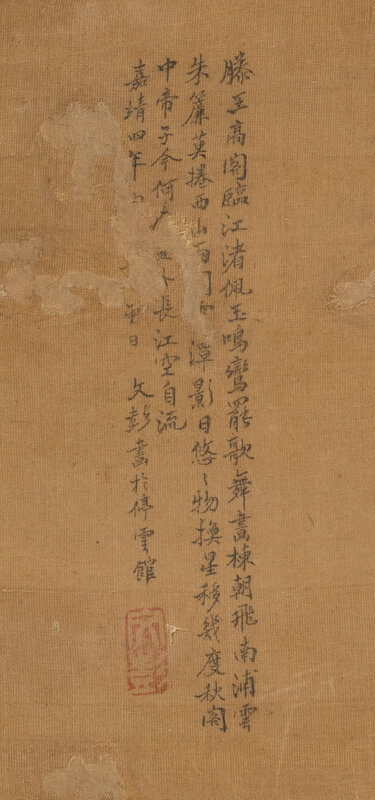 滕王高閣臨江渚佩玉鳴鸞罷歌舞畫棟朝飛南浦雲
朱簾莫捲西山雨潭影日悠〻物換星移幾度秋閣
中帝子今何外長江空自流
嘉靖四年日文彭畫於停雲館